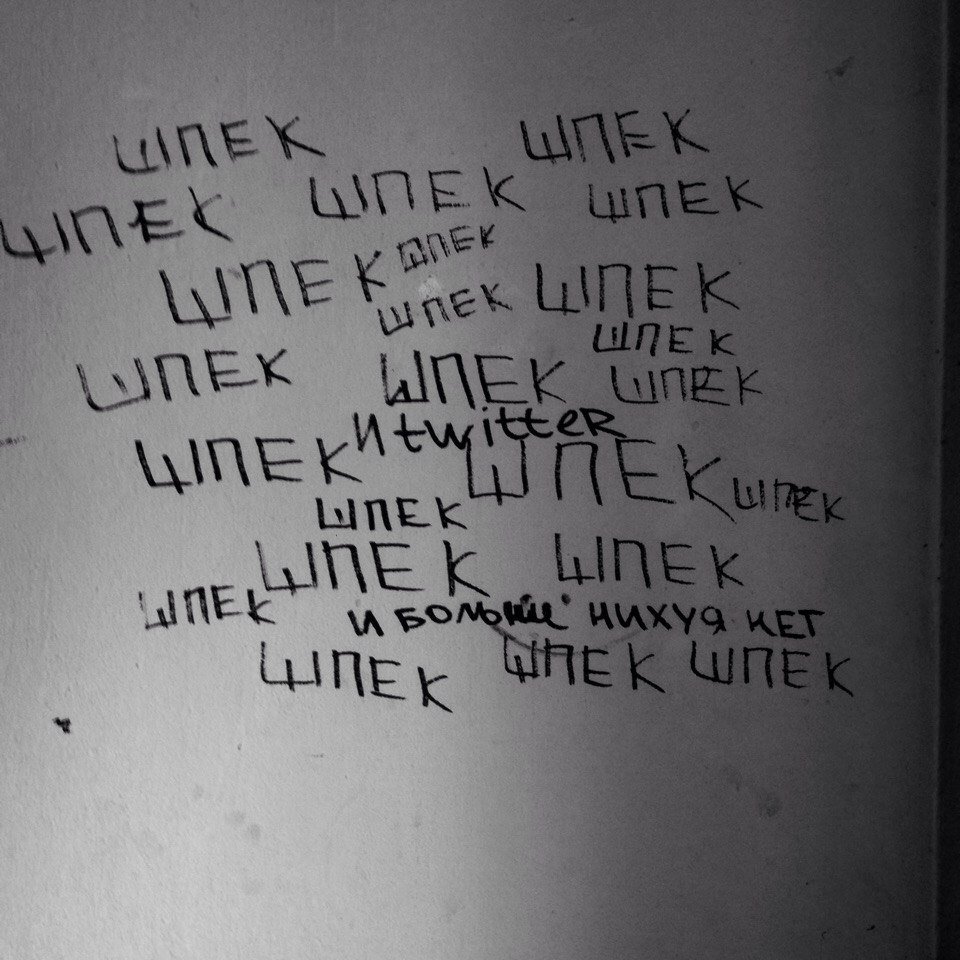 ШПЕК ШПЕК
ШПЕК ШПЕК ШПЕК
ШПЕК ШПЕК
ШПЕК ШПЕК
ШПЕК
ШПЕК ШПЕК ШПЕК
И twitter
ШПЕК ШПЕК ШПЕК
ШПЕК
ШПЕК ШПЕК
ШПЕК И БОЛЬШЕ НИХУЯ НЕТ
ШПЕК ШПЕК ШПЕК